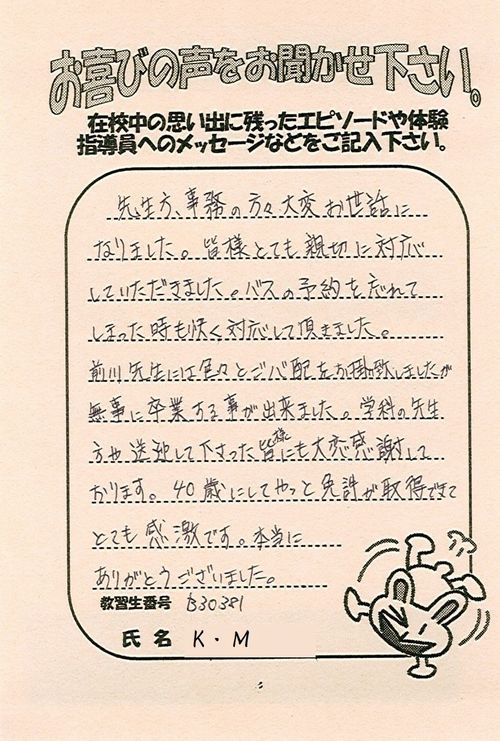 お喜びの声をお聞かせ下さい。
在校中の思い出に残ったエピソードや体験
指導員へのメッセージなどをご記入下さい。
先生方、事務の方々大変お世話に
なりました。皆様とても親切に対応
していただきました。バスの予約を忘れて
しまった時も快く対応して頂きました。
前川先生には色々とご心配をお掛け致しましたが
無事に卒業する事が出来ました。学科の先生
方や送迎して下さった皆様にも大変感謝して
おります。40歳にしてやっと免許が取得できて
とても感激です。本当に
ありがとうございました。
教習生番号 B30381
氏名 K・M